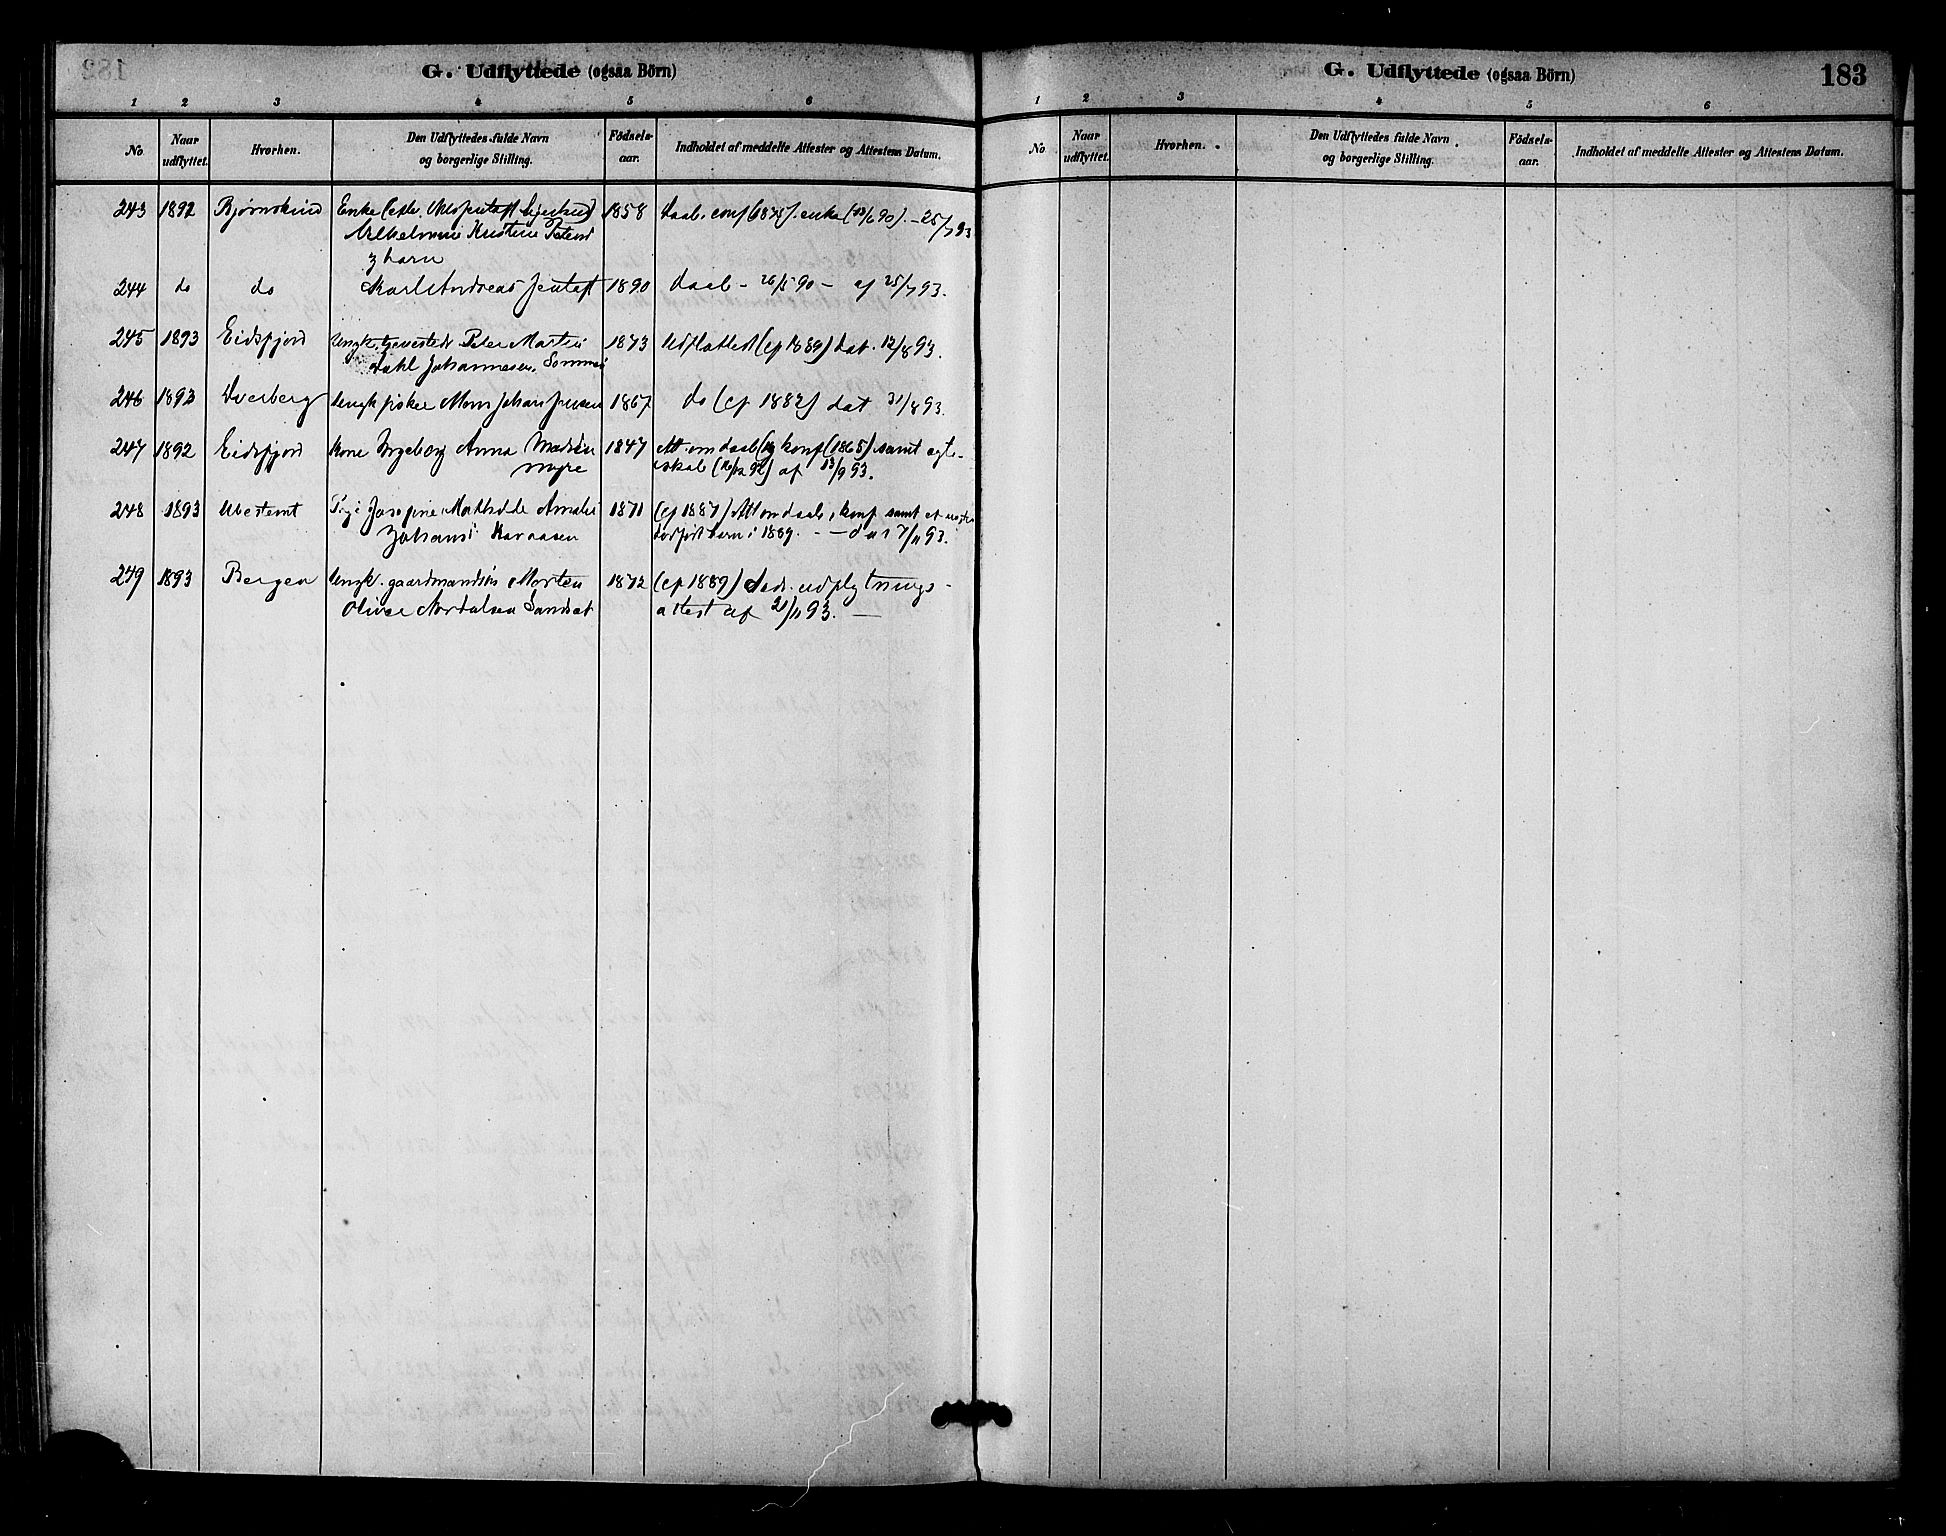 G. Udflyttede (ogsaa Börn)
1 2 3 4 5 6
No. Naar udflyttet. Hvorhen. Den Udflyttedes fulde Navn og borgerlige Stilling. Födsels-aar. Indholdet af meddelte Attester og Attestens Datum.
243 1892 Bjørnskind Enke 1858 daab, conf (1875). enke (13/6 90). - 25/7 93
Vilhelmine Kristine
z barn
244 do do Karl Andreas Jentoft 1890 daab - 26/5 90 - af 25/7 93.
245 1893 Eidsfjord Ungk. Peter Martin 1873 Udflattest (cf 1889) dat. 12/8 93.
Dahl Johannesen,
246 1893 Dverberg Ungk fisker Mons Johan Jensen 1867 do (cf 1882) dat 31/8 93.
247 1892 Eidsfjord Kone Ingeborg Anna Madsen 1847 Att. om daab og konf (1865) samt egte-
myre skab (16/12 92) af 13/9 93.
248 1893 Ubestemt Pige Josefine Mathilde Amalie 1871 (cf 1887) Att om daab, konf samt et uegte
Johansd. dødfødt barn i 1889. - - 7/11 93.
249 1893 Bergen Ungk. gaardmandssøn Morten 1872 (cf 1889) Sædv. udflytnings-
Oliver Nordalsen Sandset attest af 21/11 93. —
G. Udflyttede (ogsaa Börn) 183
1 2 3 4 5 6
No. Naar udflyttet. Hvorhen. Den Udflyttedes fulde Navn og borgerlige Stilling. Födsels-aar. Indholdet af meddelte Attester og Attestens Datum.